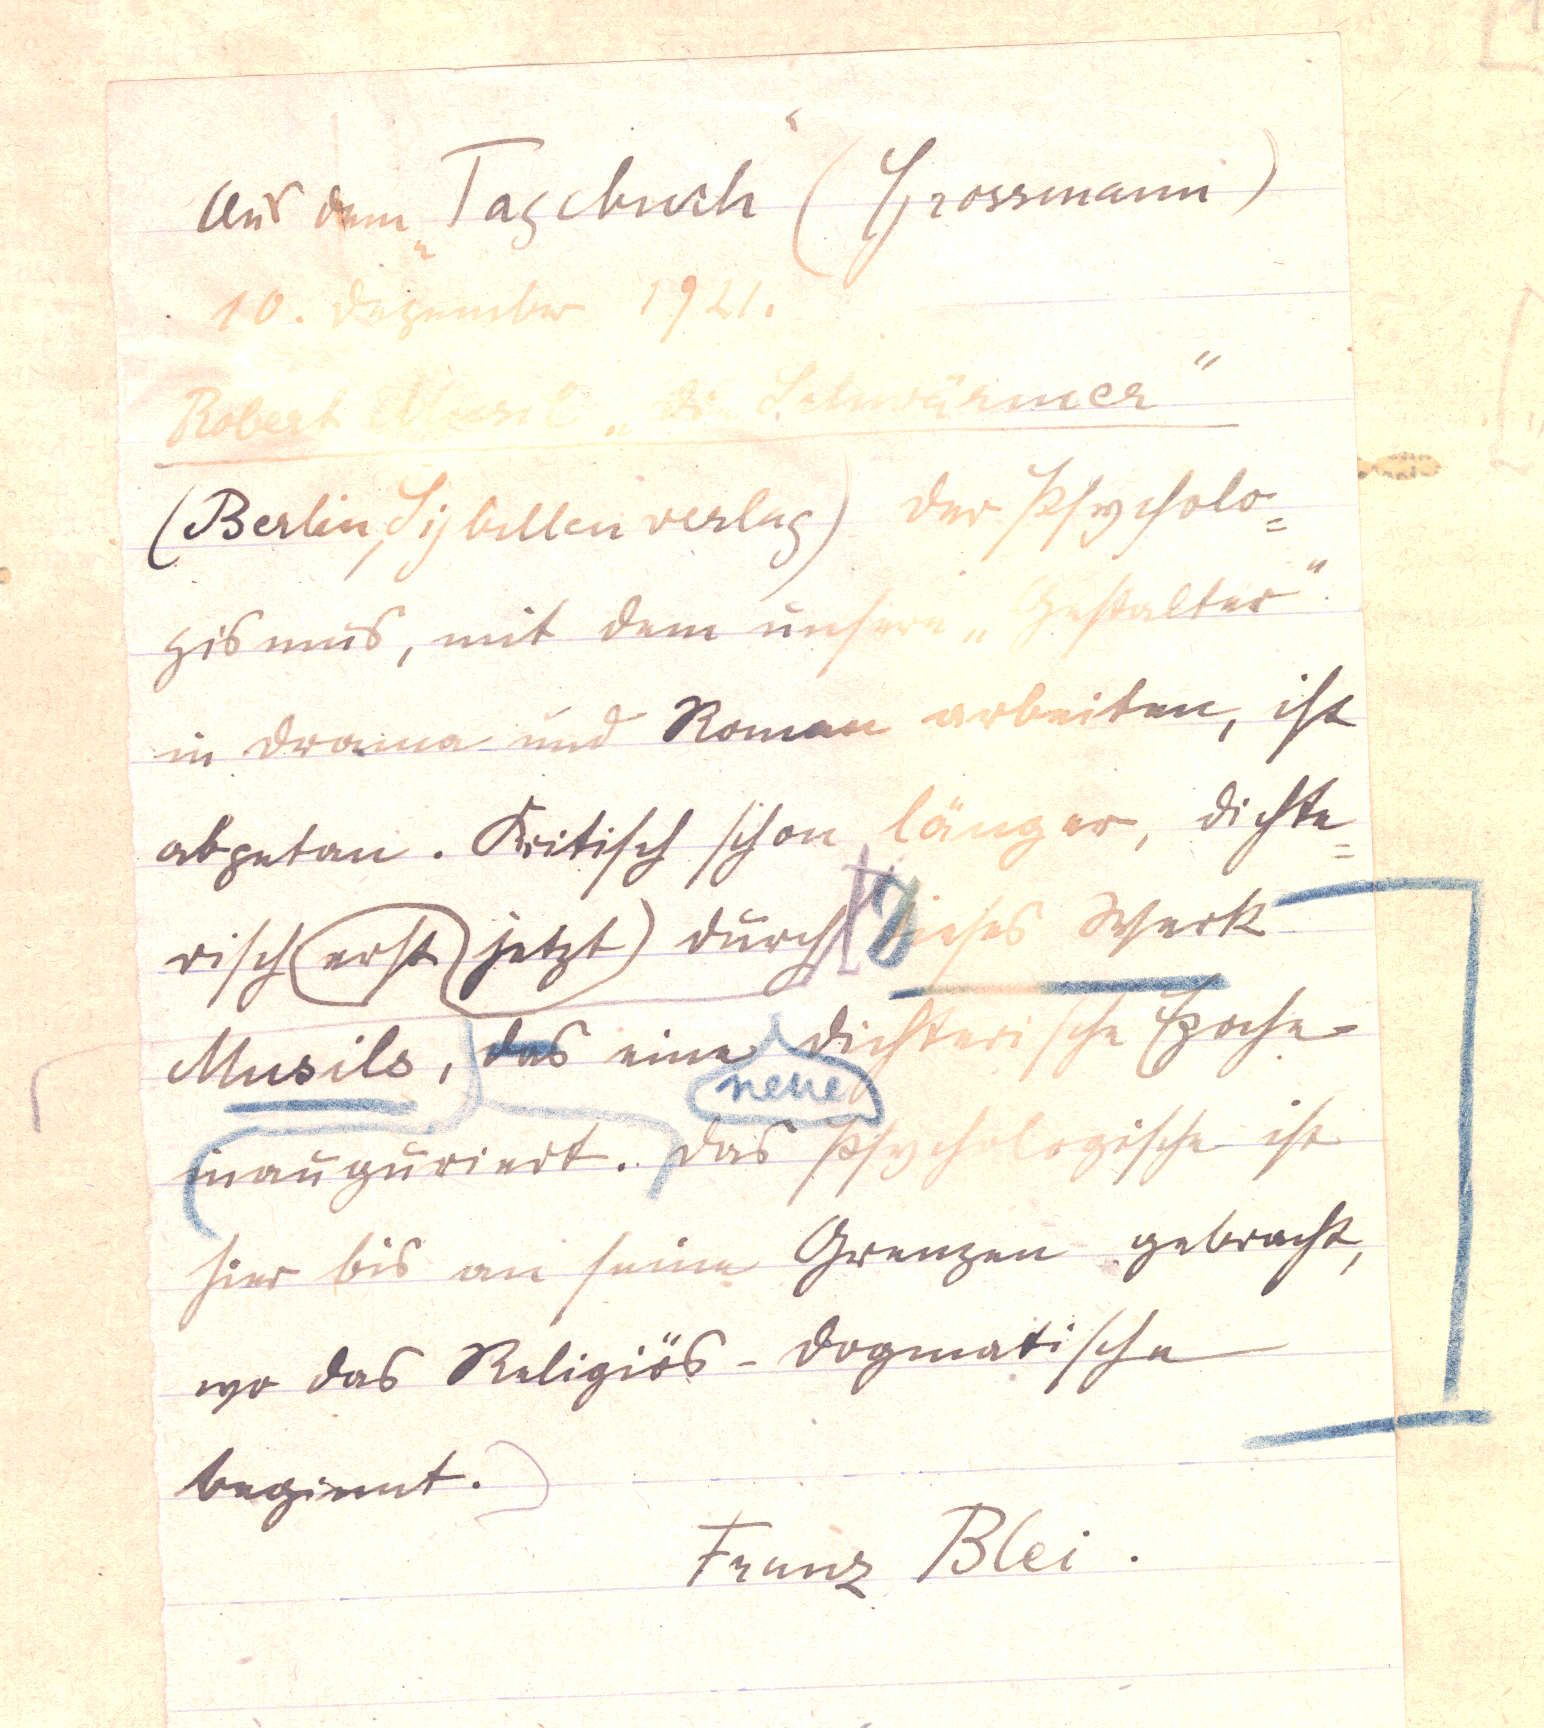 Aus dem „Tagebuch“ (Grossmann)
10. Dezember 1921.
Robert Musil „Die Schwärmer“
(Berlin, Sibyllenverlag) Der Psycholo=
gismus, mit dem unsere „Gestalter“
in Drama und Roman arbeiten, ist
abgetan. Kritisch schon länger, dichte=
risch (erst) jetzt) durch Dieses Werk
Musils, das eine dichterische Epoche
neue
inauguriert. Das Psychologische ist
hier bis an seine Grenzen gebracht,
wo das Religiös-Dogmatische
beginnt.)
Franz Blei.